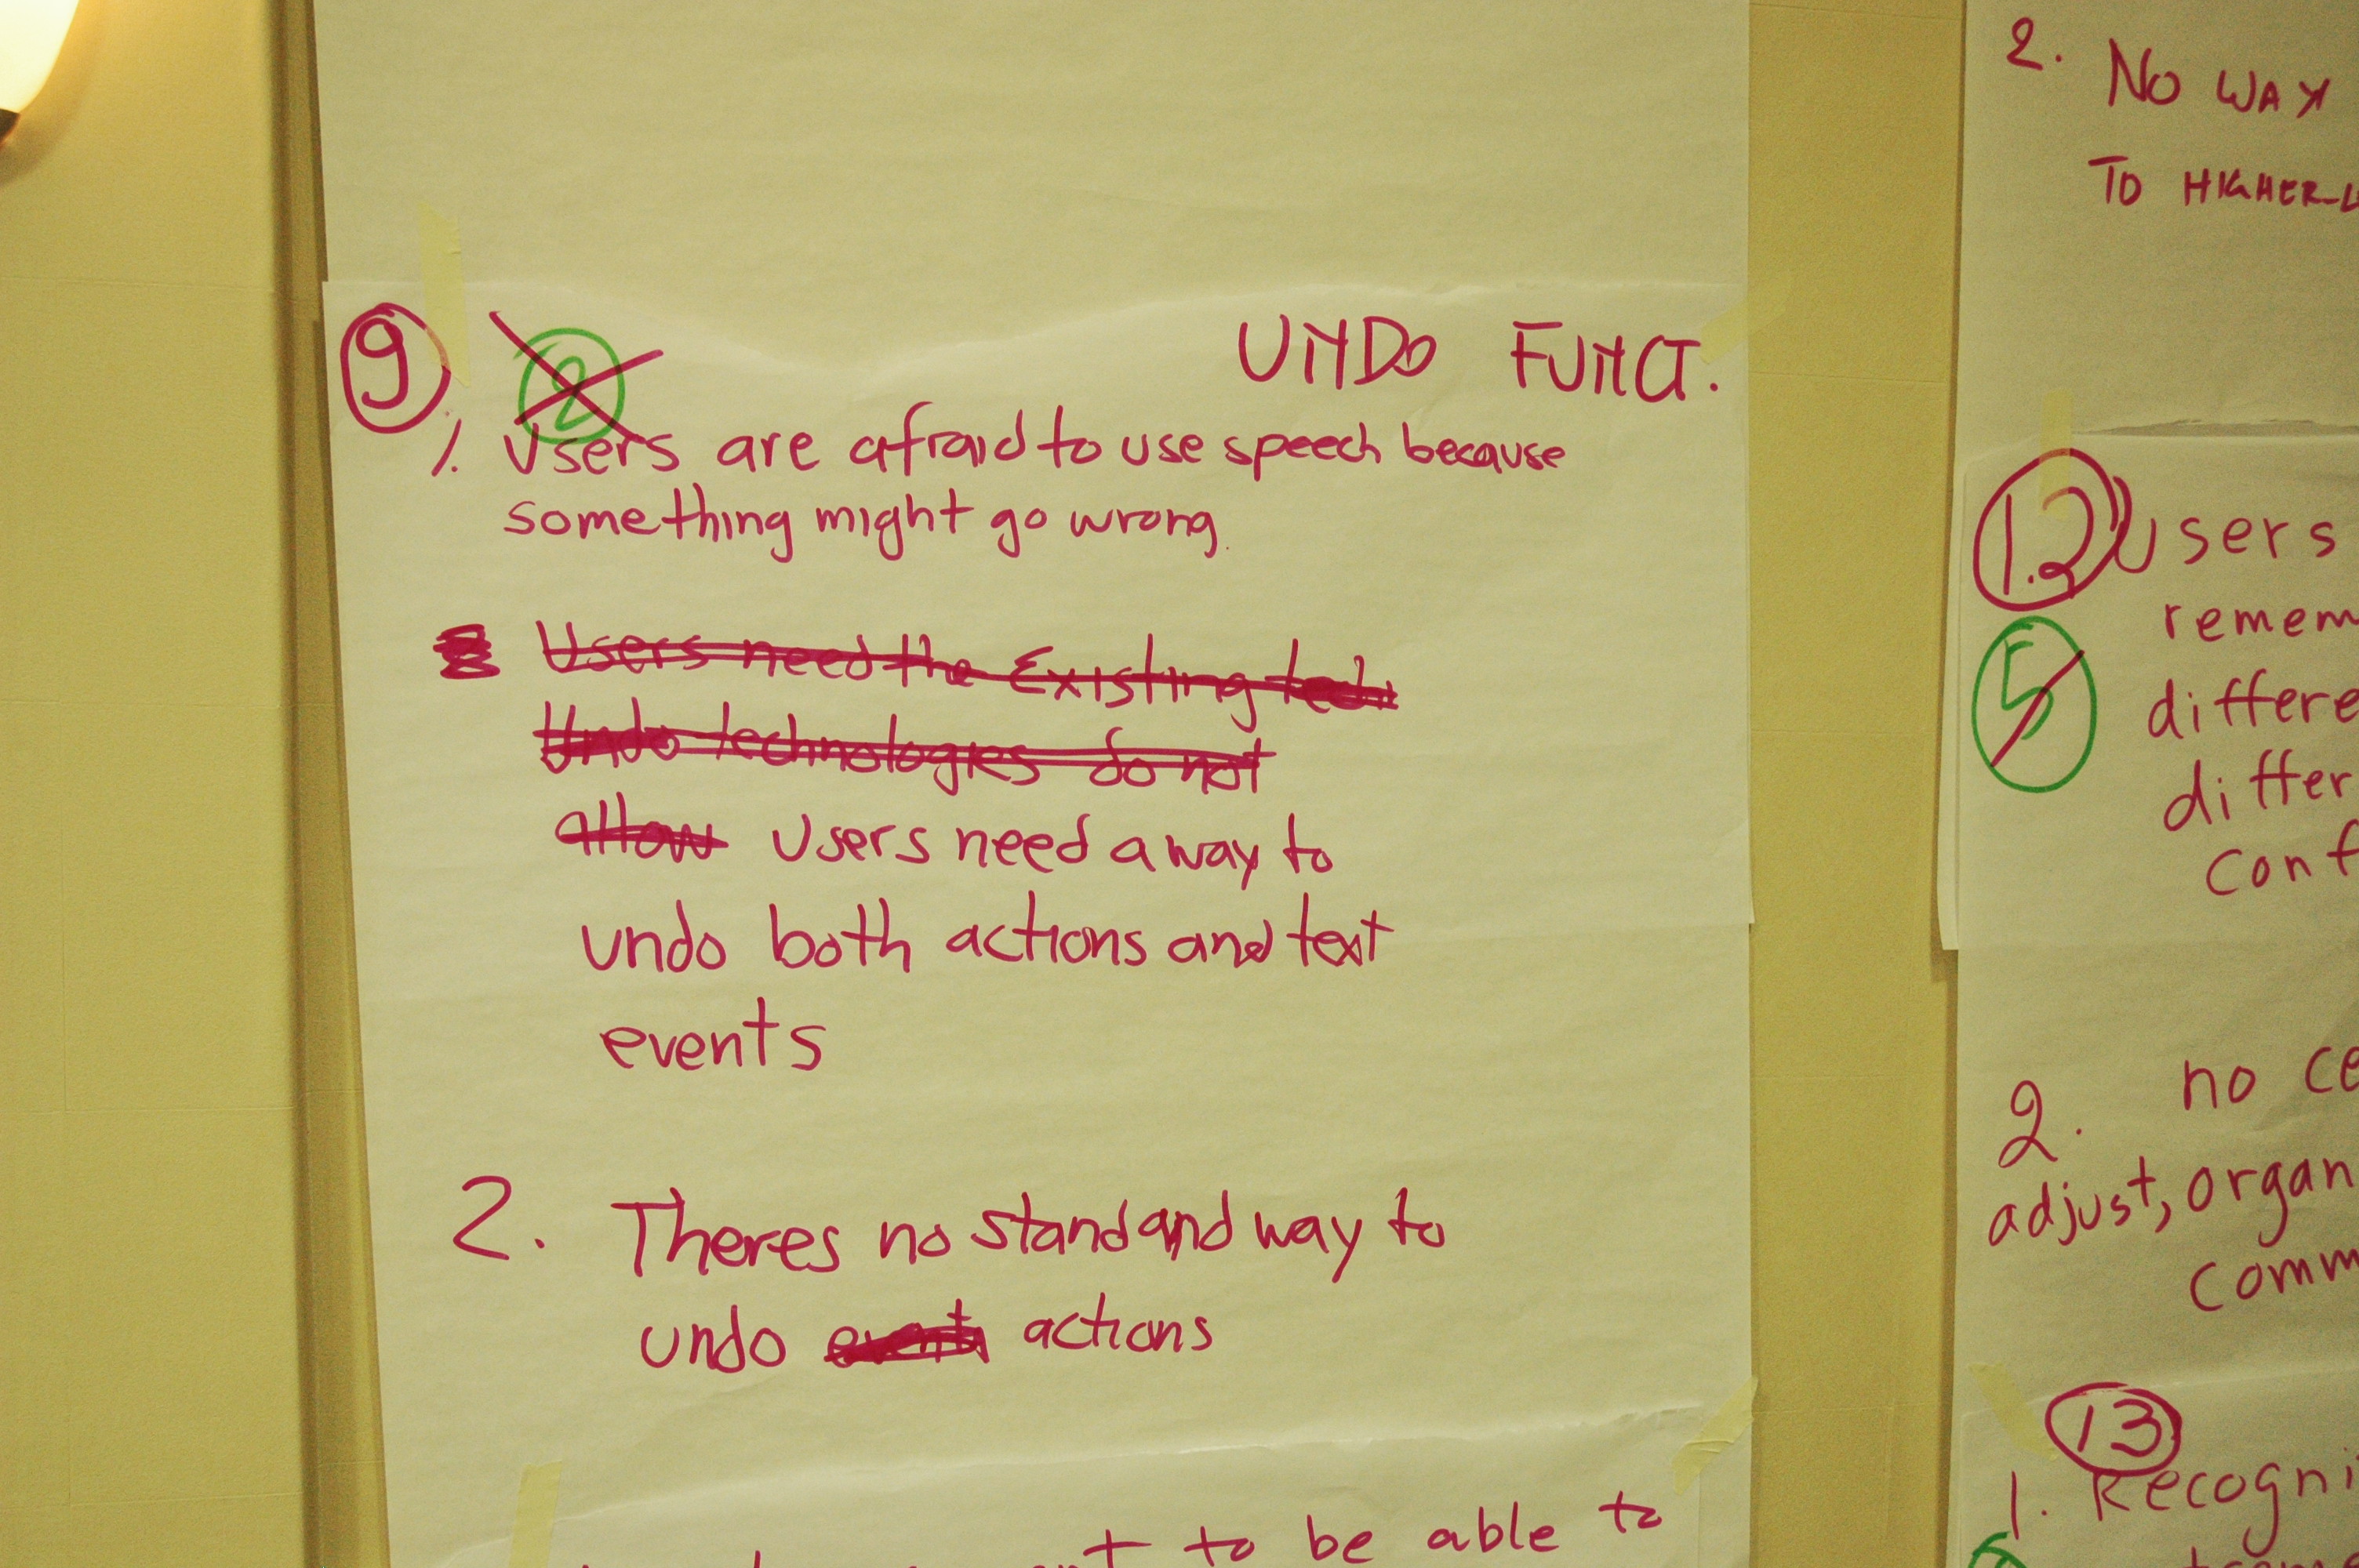 9 2 UNDO FUNCT.
1. Users are afraid to use speech because
something might go wrong.
Users need the Existing
Undo technologies do not
allow Users need a way to
undo both actions and text
events
2. Theres no standand way to
undo events actions
to be able to
2. NO WAY
TO HIGHER-L
12 Users
remem
5
differe
differ
conf
2. no ce
adjust, organ
comm
13
1. Recogni